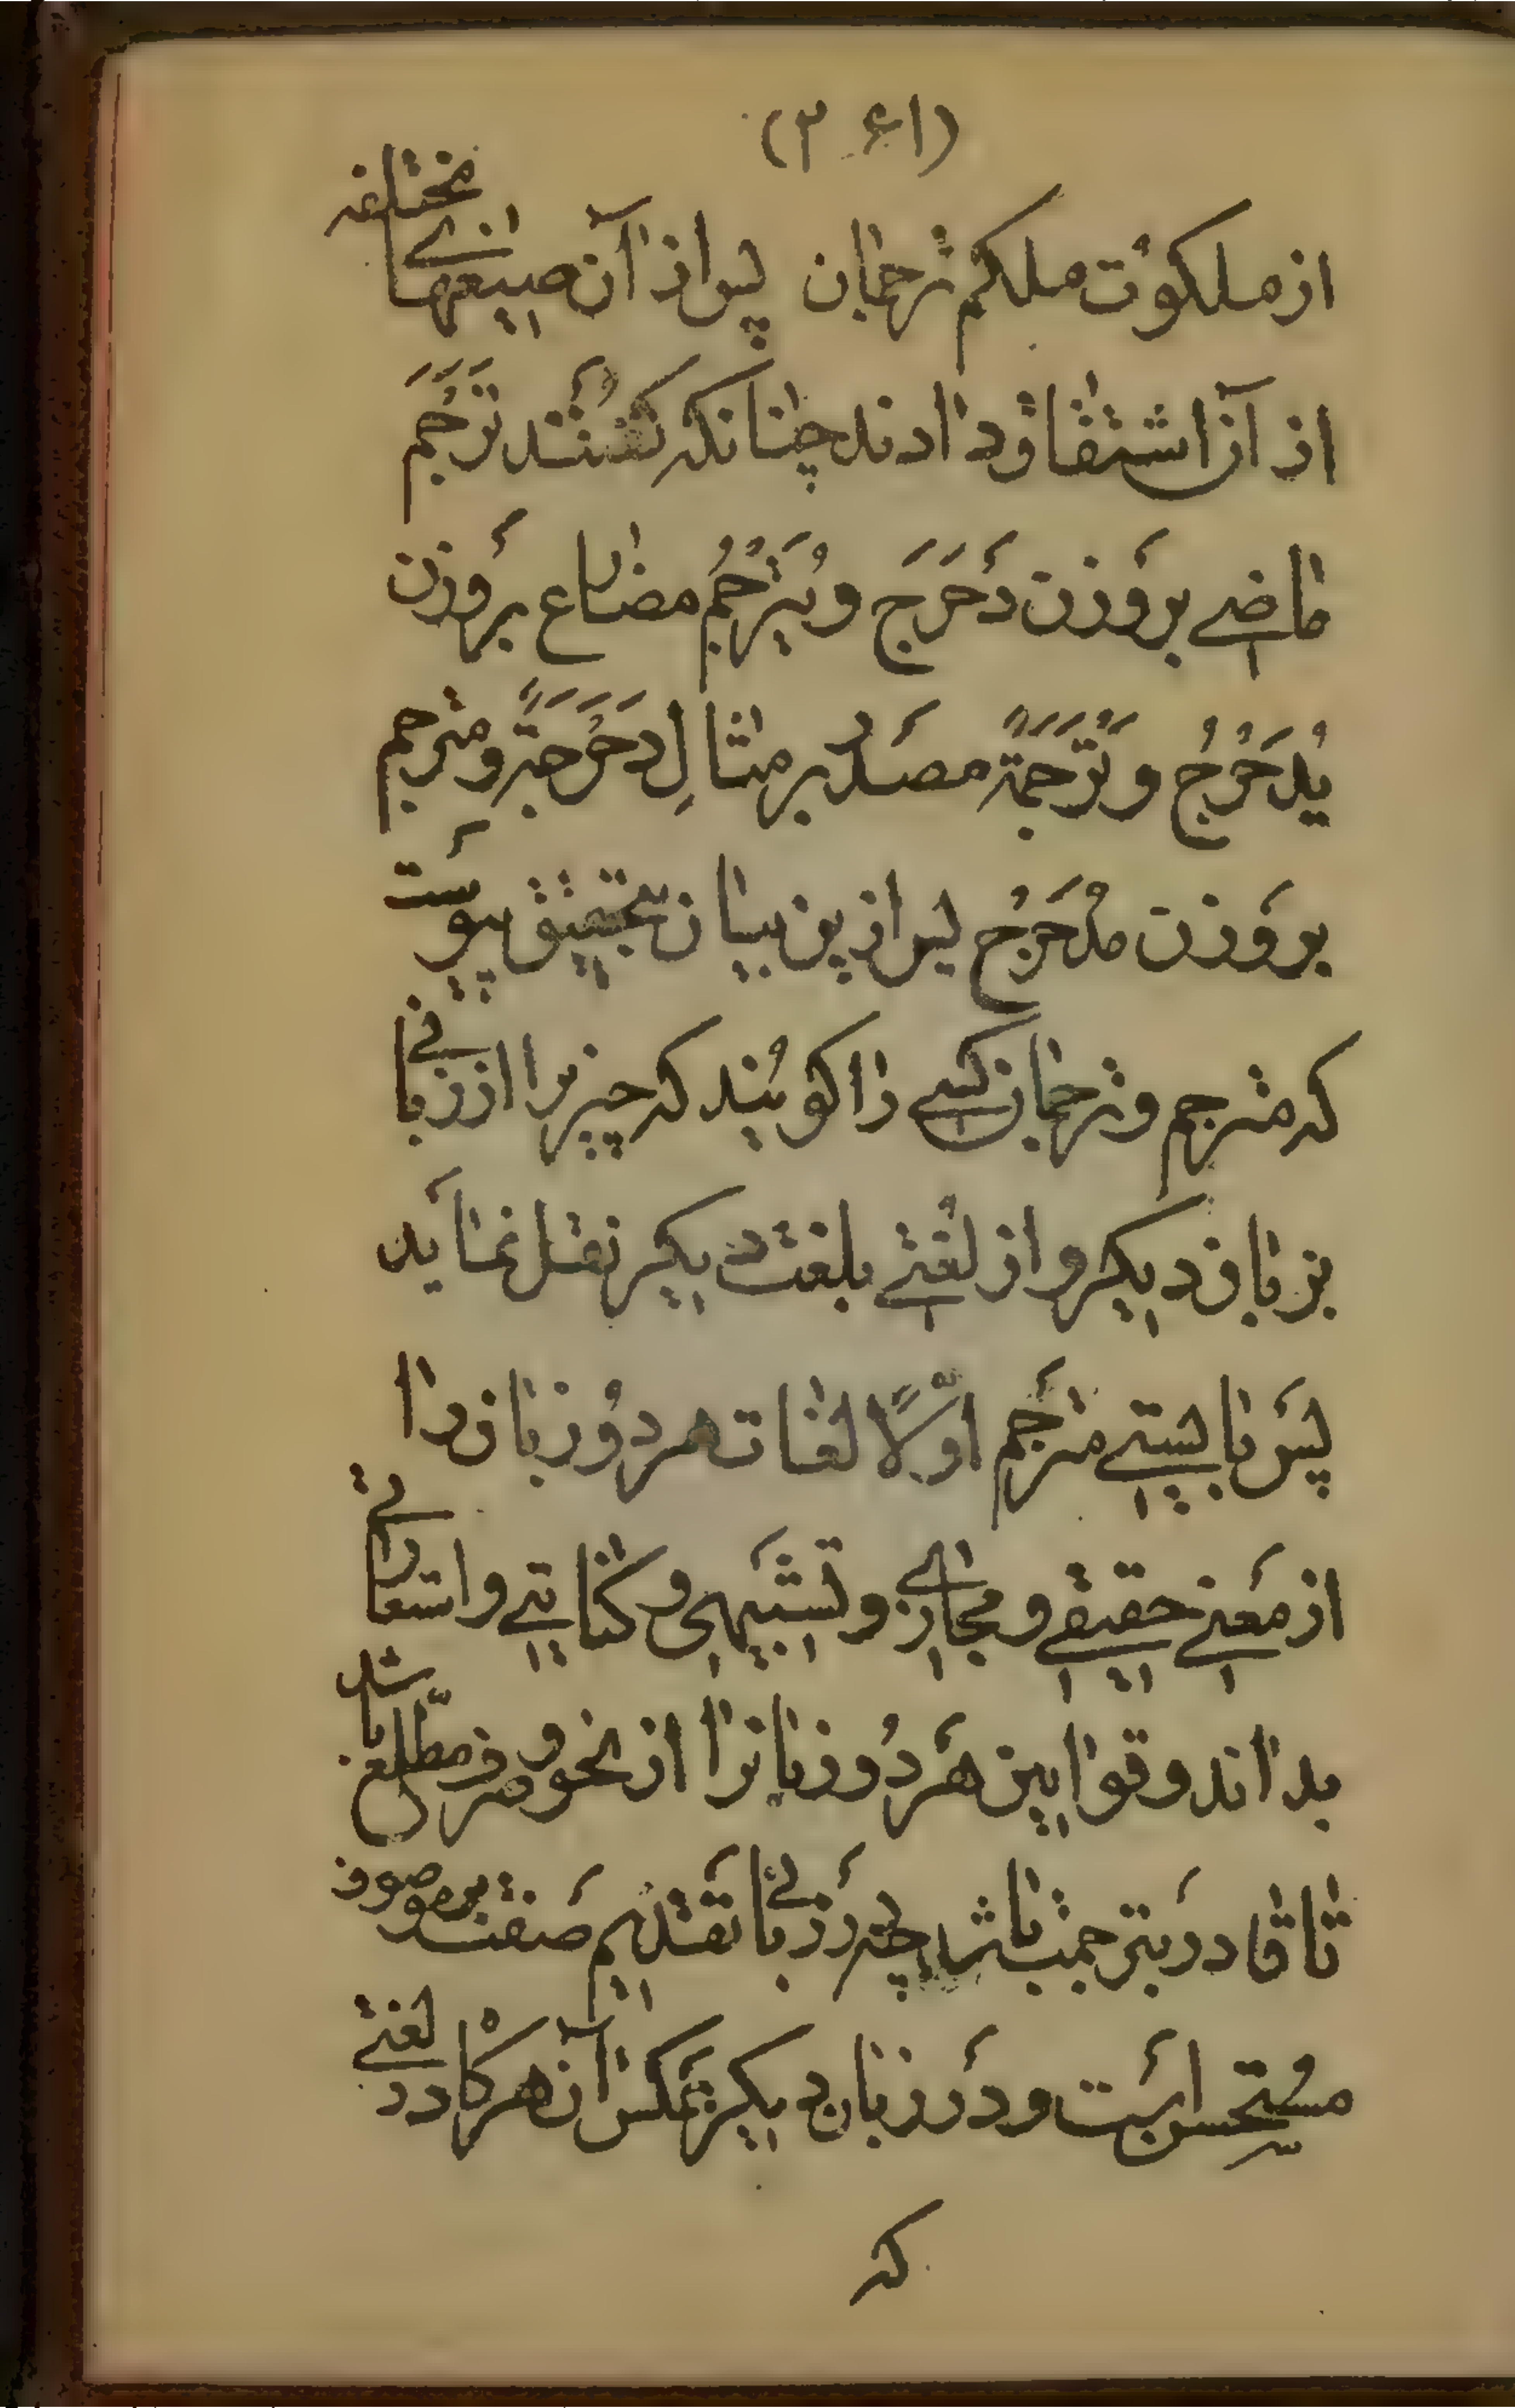 (۳۶۱)
از ملکوت ملکم ترجمان پس از آن صیغهاے مختلفه
از آن اشتقاق دادند چنانکه گفتند تَرْجَمَ
ماضے بر وزن دَحْرَجَ و یُتَرْجِمُ مضارع بر وزن
یُدَحْرِجُ و تَرْجَمَةً مصدر بر مثالِ دَحْرَجَةً و مترجم
بر وزن مُدَحْرِج پس ازین بیان بتحقیق پیوست
که مترجم و ترجمان کسے را گویند که چیزیرا از زبانے
بزبان دیگر و از لغتے بلغت دیگر نقل نماید
پس بایستے مترجم اوّلًا لغات هر دو زبان را
از معنے حقیقے و مجازے و تشبیهی و کنایتے و استعارتے
بداند و قوانین هر دو زبانرا از نحو و صرف مطّلع باشد
تا قادر بترجمت باشد چه در زبانے تقدیم صفت بر موصوف
مستحسن است و در زبان دیگر بعکس آن هرگاه در لغتے
که